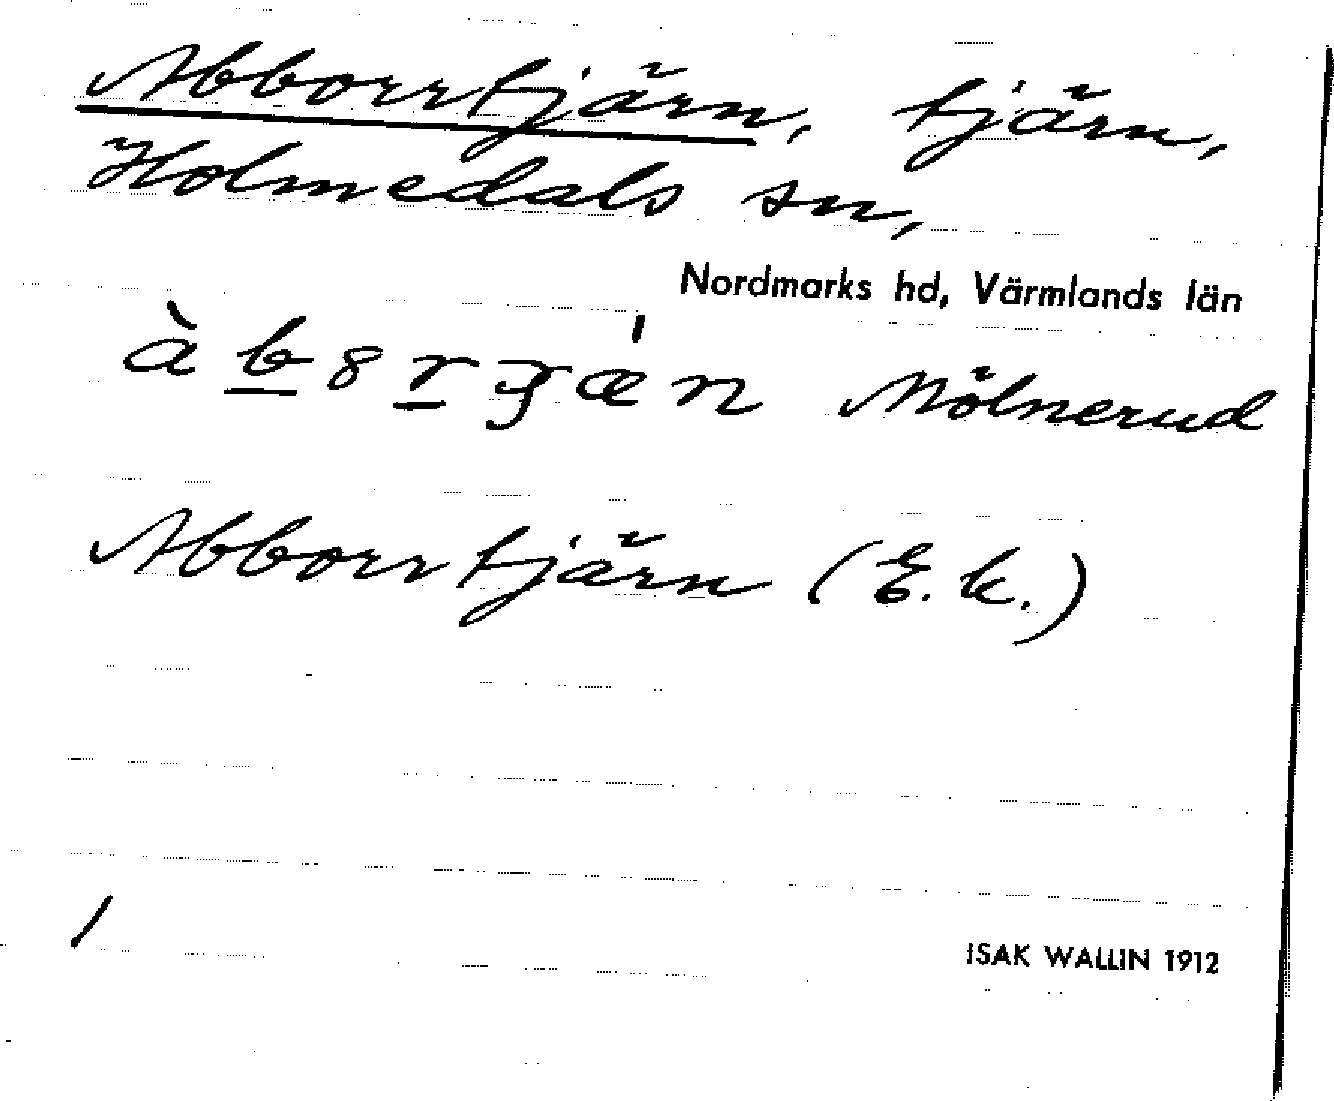 Abborrtjärn, tjärn,
Holmedals sn,
Nordmarks hd, Värmlands län
Mölnerud
Abborrtjärn (E.k.)
/
ISAK WALLIN 1912